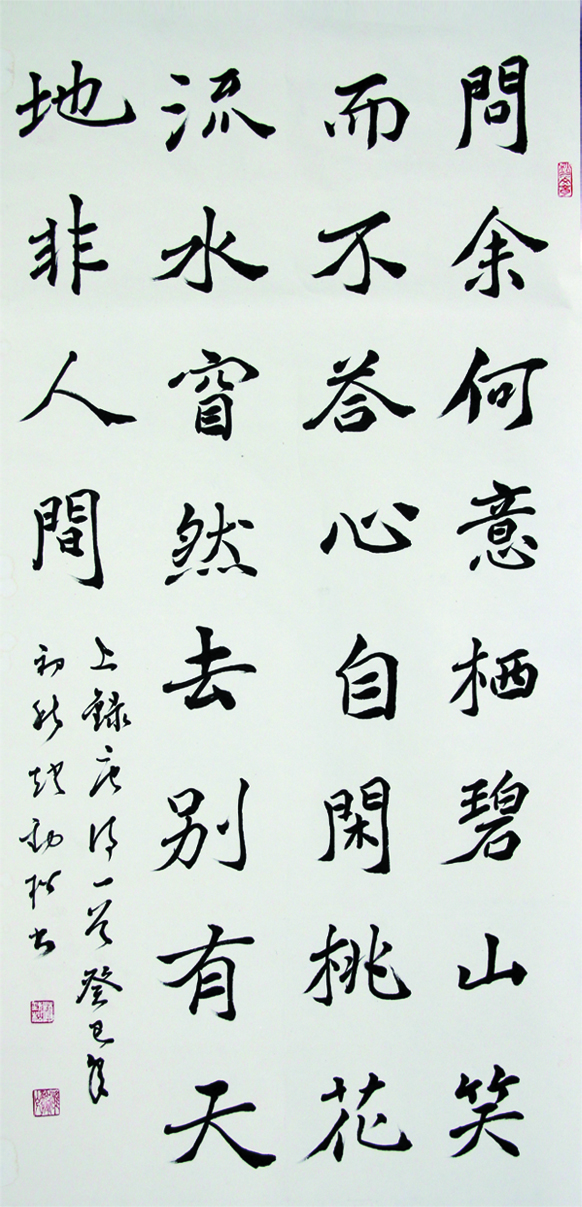 問余何意栖碧山笑
而不答心自閑桃花
流水窅然去别有天
地非人間
上録唐诗一首癸巳年
初秋赵劲松书